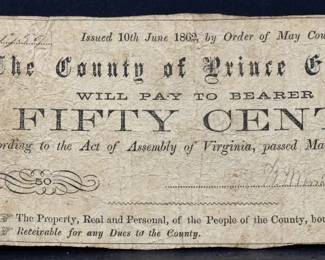 Issued 10th June 1862, by Order of May Cou
The County of Prince G
WILL PAY TO BEARER
FIFTY CENT
ording to the Act of Assembly of Virginia, passed Ma
50
The Property, Real and Personal, of the People of the County, bou
Receivable for any Dues to the County.